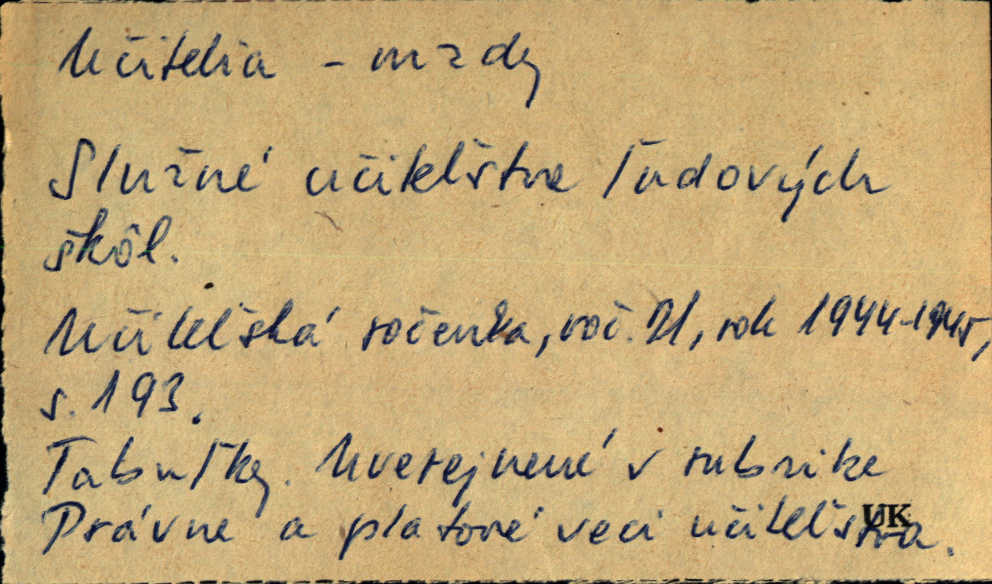 Učitelia - mzdy
Služné učiteľstva ľudových
škôl.
Učiteľská ročenka, roč. 21, rok 1944-1945,
s. 193.
Tabuľky. Uverejnené v rubrike
Právne a platové veci učiteľstva.
UK